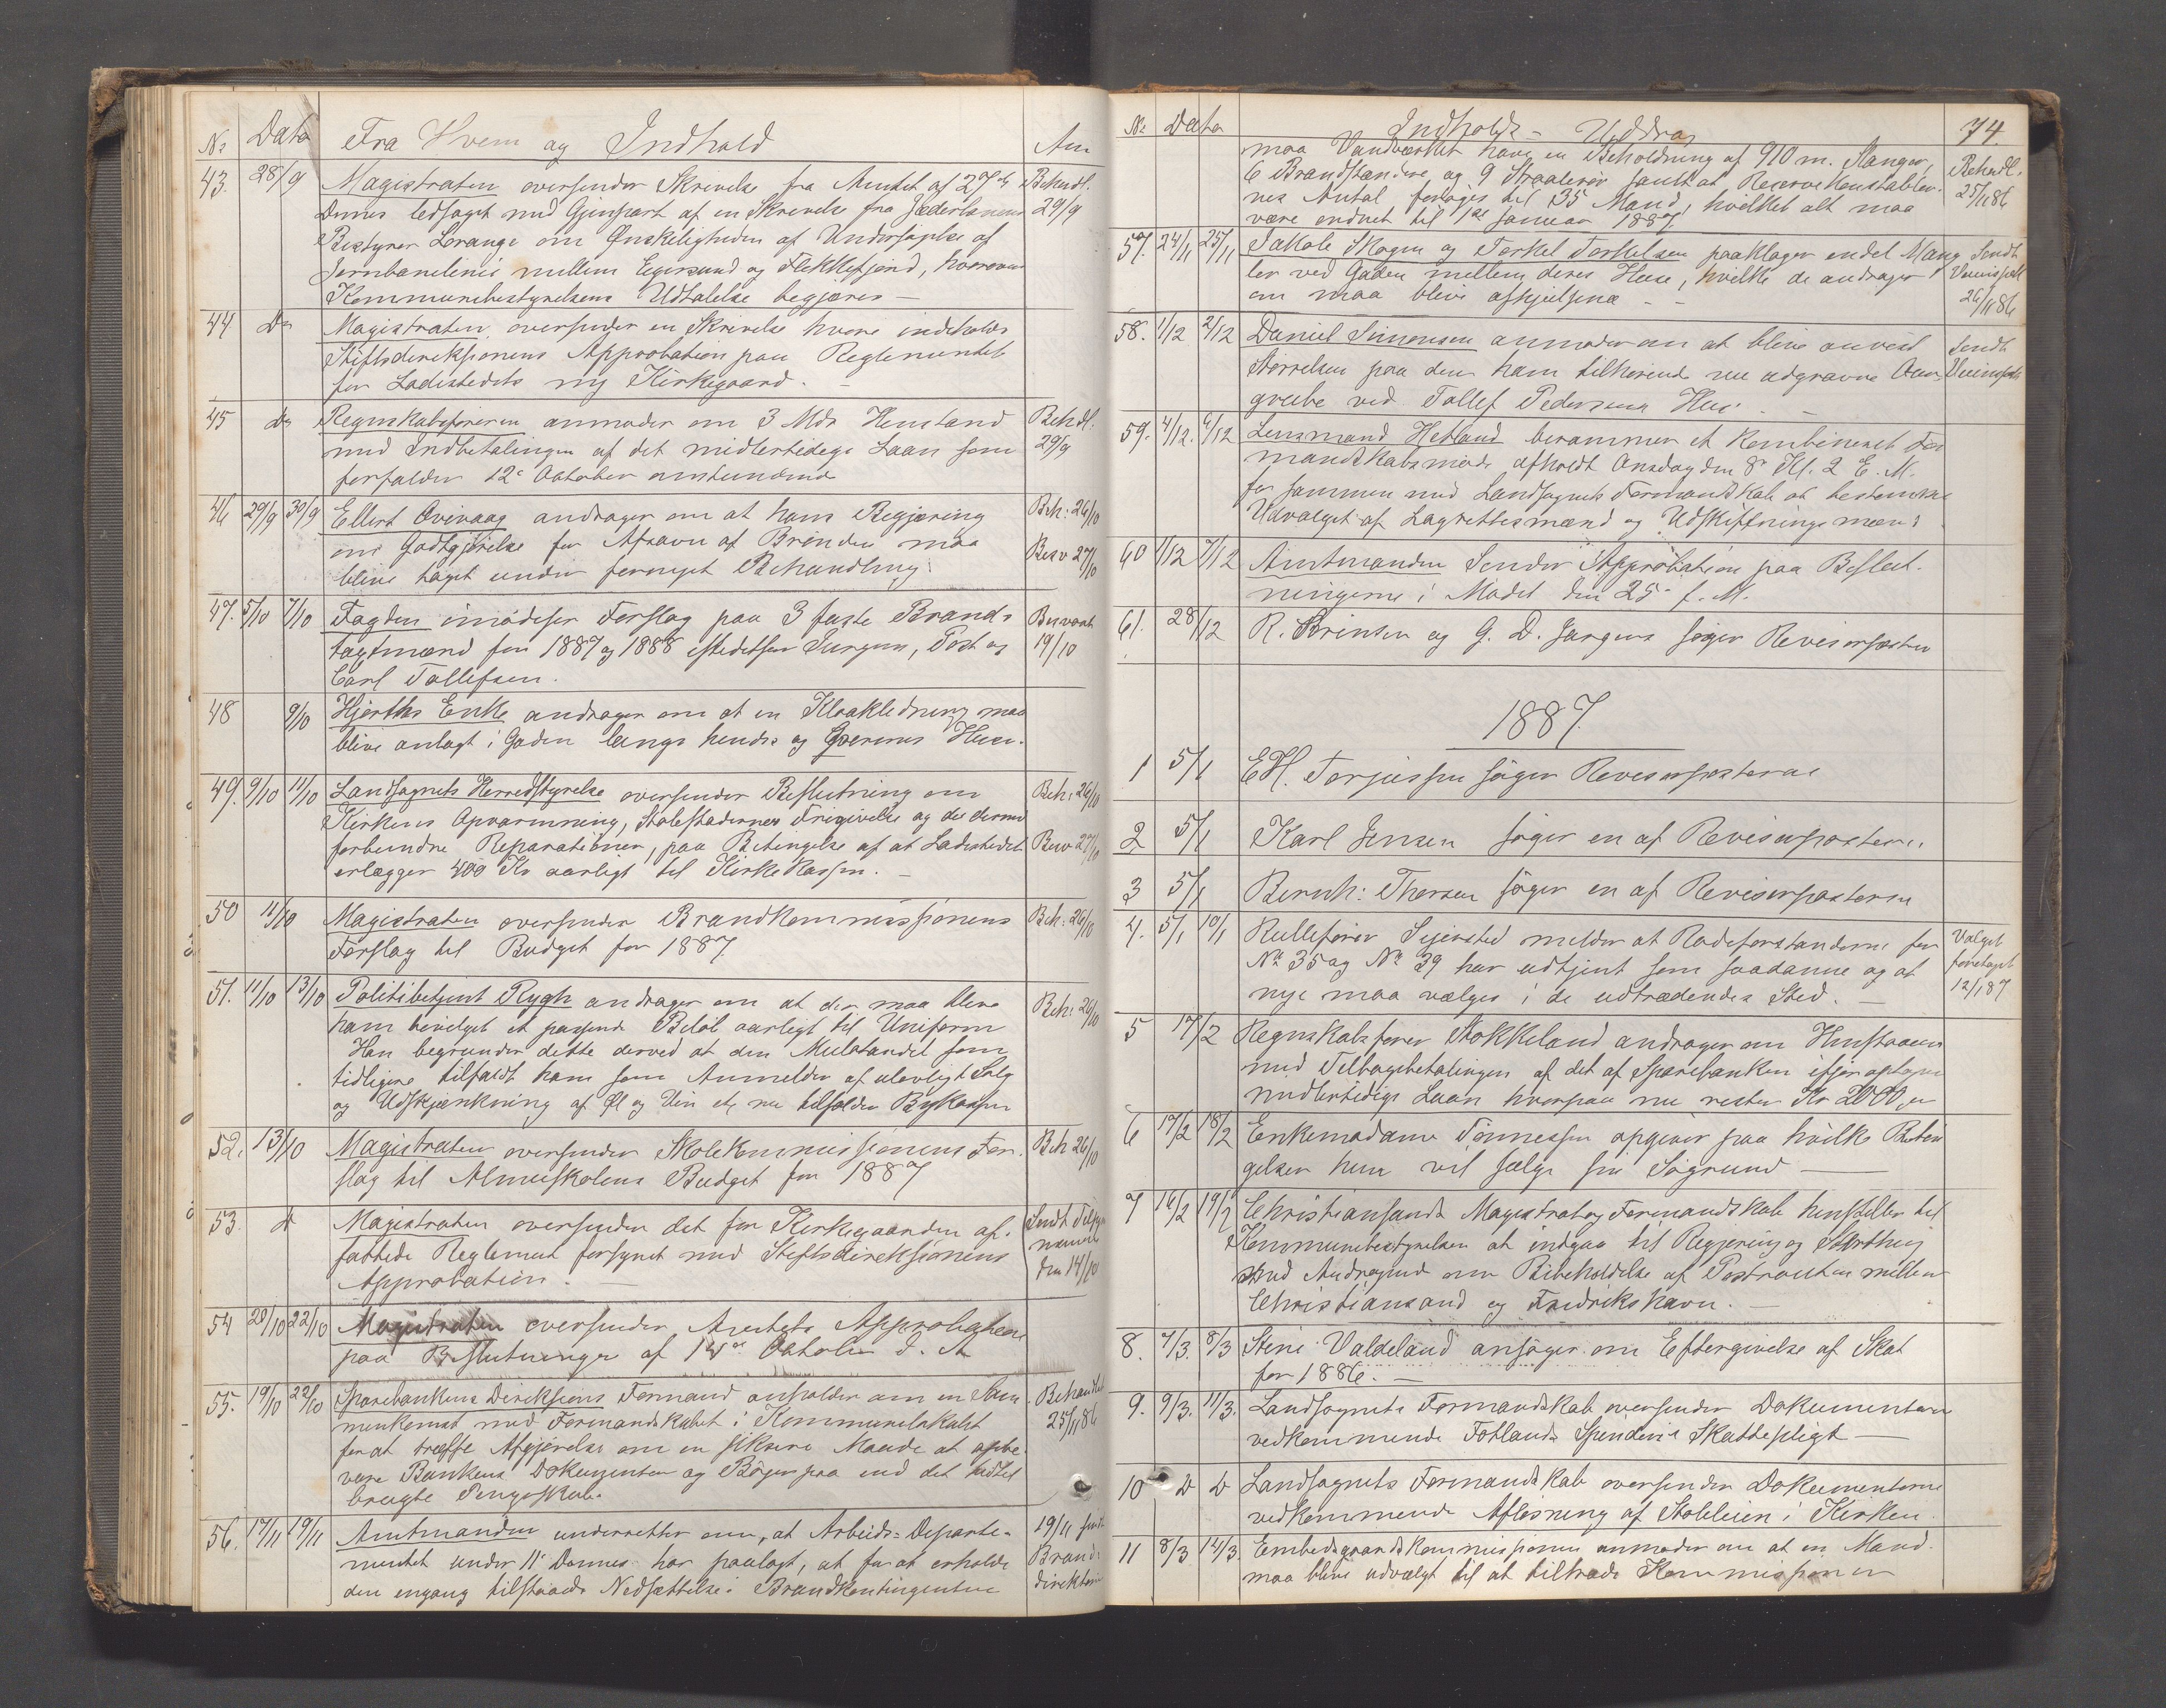 No Dato Fra Hvem og Indhold Anm
43. 28/9 Magistraten oversender Skrivelse fra Amtet af 27de Behndl.
Dennes ledsaget med Gjenpart af en Skrivelse fra Jæderbanens 29/9
Bestyrer Lorange om Ønskeligheden af Undersøgelse af
Jernbanelinie mellem Egersund og Flekkefjord, hvorom
Kommunebestyrelsens Udtalelse begjæres —
44 Do Magistraten oversender en Skrivelse hvori indeholdes
Stiftsdireksionens Approbation paa Reglementet
for Ladestedets ny Kirkegaard. —
45 Do Regnskabsføreren anmoder om 3 Mdr Henstand Behdl.
med Indbetalingen af det midlertidige Laan som 29/9
forfalder 12te Oktober anstundende
46 29/9 30/9 Ellert Qvivaag andrager om at hans Begjæring Beh: 26/10
om Godtgjørelse for Afsavn af Brønden maa Besv 27/10
blive taget under fornyet Behandling.
47. 5/10 7/10 Fogden imødeser Forslag paa 3 faste Brand- Besvart
tagtmænd for 1887 og 1888 istedetfor Jurgens, Post og 19/10
Carl Tollefsen.
48 9/10 Hjorths Enke andrager om at en Kloakledning maa
blive anlagt i Gaden langs hendes og Huse.
49. 9/10 11/10 Landsognets Herredstyrelse oversender Beslutning om Beh: 26/10
Kirkens Opvarmning, Stolestadernes Frigivelse og de dermed
forbundne Reparationer, paa Betingelse af at Ladestedet Besv 27/10
erlægger 400 Kr aarligt til Kirkekassen. —
50 11/10 Magistraten oversender Brandkommissionens Beh: 26/10
Forslag til Budget for 1887.
51. 11/10 13/10 Politibetjent Rygh andrager om at der maa blive
ham bevilget et passende Beløb aarligt til Uniform Beh: 26/10
Han begrunder dette derved at den Mulctandel som
tidligere tilfaldt ham som Anmelder af ulovligt Salg
og Udskjænkning af Øl og Vin etc nu tilfalder Bykassen
52. 13/10 Magistraten oversender Skolekommissionens For- Beh 26/10
slag til Almueskolens Budget for 1887
53. Do Magistraten oversender det for Kirkegaarden af- Sendt Tilsyns
fattede Reglement forsynet med Stiftsdireksionens
Approbation. — den 14/10
54 20/10 22/10 Magistraten oversender Amtets Approbation
paa Beslutninger af Oktober d. A
55. 19/10 22/10 Sparebankens Direksions Formand anholder om en Sam- Behandlet
menkomst med Formandskabet i Kommunelokalet 25/11 86
for at træffe Afgjørelse om en sikrere Maade at opbe-
vare Bankens Dokumenter og Bøger paa end det hidtil
brugte Pengeskab.
56. 17/11 19/11 Amtmanden underretter om, at Arbeids-Departe- 19/11 sendt
mentet under 11te Dennes har paalagt, at for at erholde Brand-
den engang tilstaaede Nedsættelse i Brandkontingenten direktør
No Dato Indholds-Uddrag 74.
maa Vandværket have en Beholdning af 910 m. Slanger, Behndl.
6 Brandstændere og 9 Straalerør samt at Reservekonstabler- 25/11 86
nes Antal forøges til 35 Mand, hvilket alt maa
være ordnet til 1ste Januar 1887.
57. 24/11 25/11 Jakob Skogen og Torkel Torkelsen paaklager endel Mang- Sendt
ler ved Gaden mellem deres Huse, hvilke de andrager Veiinspekt
om maa blive afhjulpne — — 26/11 86
58. 1/12 2/12 Daniel Simonsen anmoder om at blive anvist Sendt
Størrelsen paa den ham tilhørende nu udgravne Veiinspekt
grube ved Tollef Pedersens Hus. —
59. 4/12. 6/12 Lensmand Hetland berammer et kombineret For-
mandskabsmøde afholdt Onsdag den 8de Kl. 2 E.M.
for sammen med Landsognets Formandskab at bestemme
Udvalget af Lagrettesmænd og Udskiftningsmænd
60 1/12 7/12 Amtmanden Sender Approbation paa Beslut-
ningerne i Mødet den 25de f. M.
61. 28/12 R. Sørensen og G. D. Jurgens søger Revisorposten
1887.
1 5/1 E H. Torjussen søger Revisorposterne
2 5/1 Karl Jensen søger en af Revisorposterne
3 5/1 Bernh: Thorsen søger en af Revisorposterne
4. 5/1 10/1 Rullefører Sejersted melder at Rodeforstanderne for Valget
No 35 og No 39 har udtjent som saadanne og at foretaget
nye maa vælges i de udtrædendes Sted. — 12/1 87
5 17/2 Regnskabsfører Stokkeland andrager om Henstaaen
med Tilbagebetalingen af det af Sparebanken ifjor optagne
midlertidige Laan hvorpaa nu rester Kr 2000,00
6 17/2 18/2 Enkemadame Tønnessen opgiver paa hvilke Betin-
gelser hun vil sælge sin Søgrund —
7 16/2 19/2 Christianssands Magistrat og Formandskab henstiller til
Kommunebestyrelsen at indgaa til Regjering og Storthing
med Andragende om Bibeholdelse af Postrouten mellem
Christianssand og Fredrikshavn. —
8. 7/3. 8/3 Stine Valdeland ansøger om Eftergivelse af Skat
for 1886. —
9. 9/3. 11/3. Landsognets Formandskab oversender Dokumenterne
vedkommende Fotlands Spinderis Skattepligt —
10 Do Do Landsognets Formandskab oversender Dokumenterne
vedkommende Afløsning af Stoleleien i Kirken
11 8/3 12/3. Embedsgaardskommissionen anmoder om at en Mand
maa blive udvalgt til at tiltræde Kommissionen